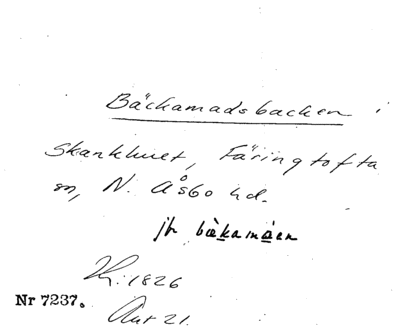 Bäckamadsbacken i
Skankhuet, Färingtofta
sn, N. Åsbo hd.
jfr bäkamåen
1826
Nr 7237.
21.